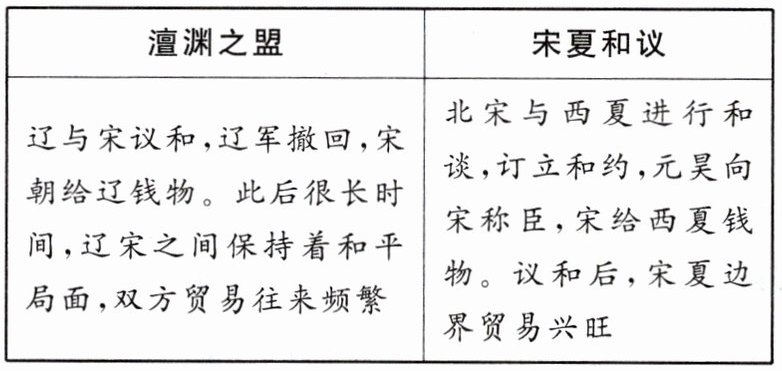 澶渊之盟
宋夏和议
辽与宋议和,辽军撤回,宋
朝给辽钱物。此后很长时
间,辽宋之间保持着和平
局面,双方贸易往来频繁
北宋与西夏进行和
谈,订立和约,元昊向
宋称臣,宋给西夏钱
物。议和后,宋夏边
界贸易兴旺